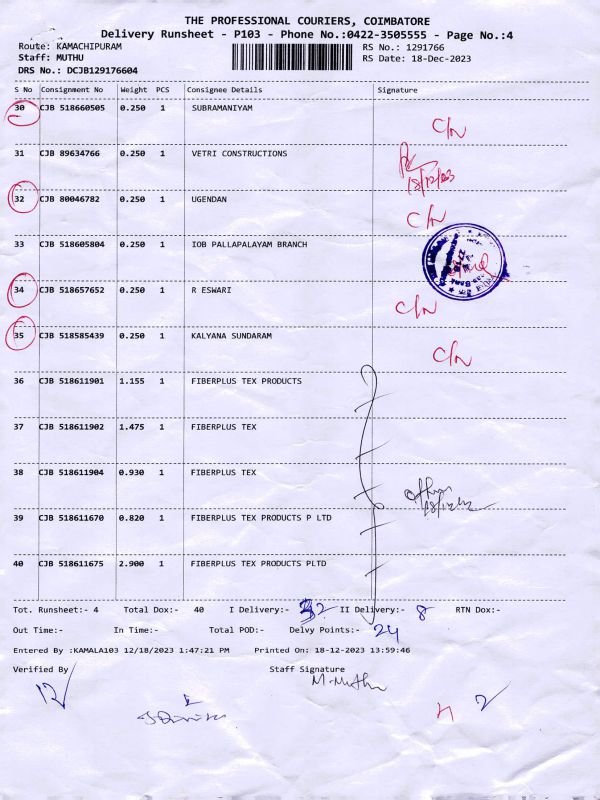 THE PROFESSIONAL COURIERS, COIMBATORE
Delivery Runsheet - P103 - Phone No.:0422-3505555 - Page No.:4
Route: KAMACHIPURAM RS No.: 1291766
Staff: MUTHU RS Date: 18-Dec-2023
DRS No.: DCJB129176604
S No Consignment No Weight PCS Consignee Details Signature
30 CJB 518660505 0.250 1 SUBRAMANIYAM
C/N
31 CJB 89634766 0.250 1 VETRI CONSTRUCTIONS
18/12/23
32 CJB 80046782 0.250 1 UGENDAN
C/N
33 CJB 518605804 0.250 1 IOB PALLAPALAYAM BRANCH
34 CJB 518657652 0.250 1 R ESWARI
C/N
35 CJB 518585439 0.250 1 KALYANA SUNDARAM
C/N
36 CJB 518611901 1.155 1 FIBERPLUS TEX PRODUCTS
37 CJB 518611902 1.475 1 FIBERPLUS TEX
38 CJB 518611904 0.930 1 FIBERPLUS TEX
39 CJB 518611670 0.820 1 FIBERPLUS TEX PRODUCTS P LTD
40 CJB 518611675 2.900 1 FIBERPLUS TEX PRODUCTS PLTD
Tot. Runsheet:- 4 Total Dox:- 40 I Delivery:- 32 II Delivery:- 8 RTN Dox:-
Out Time:- In Time:- Total POD:- Delvy Points:- 24
Entered By :KAMALA103 12/18/2023 1:47:21 PM Printed On: 18-12-2023 13:59:46
Verified By Staff Signature
M.Muthu